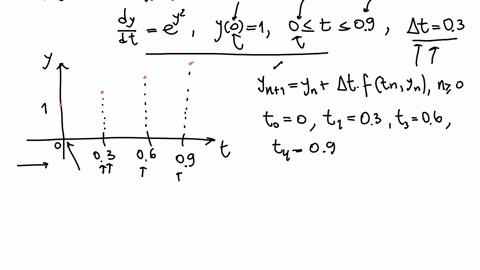 dy/dt = e^{y^2}, y(0)=1, 0 ≤ t ≤ 0.9, Δt=0.3
y
y_{n+1} = y_n + Δt·f(t_n, y_n), n≥0
1
t_0=0, t_2=0.3, t_3=0.6,
0 0.3 0.6 0.9 t
t_4=0.9